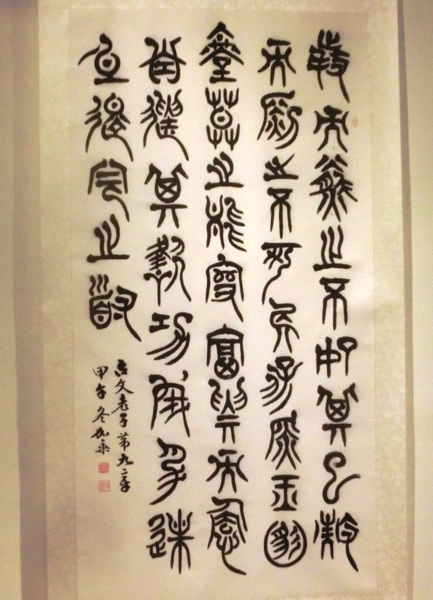 持而盈之不如其已揣
而銳之不可長保金玉滿
堂莫之能守富貴而驕
自遺其咎功成名遂
身退天之道
古文老子第九章
甲午冬